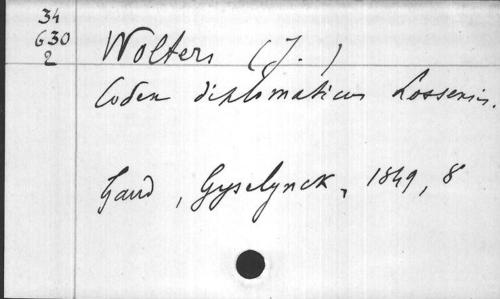 34
630
2
Wolters (J.)
Codex diplomaticus Lossensis.
Gand, Gyselynck, 1849, 8